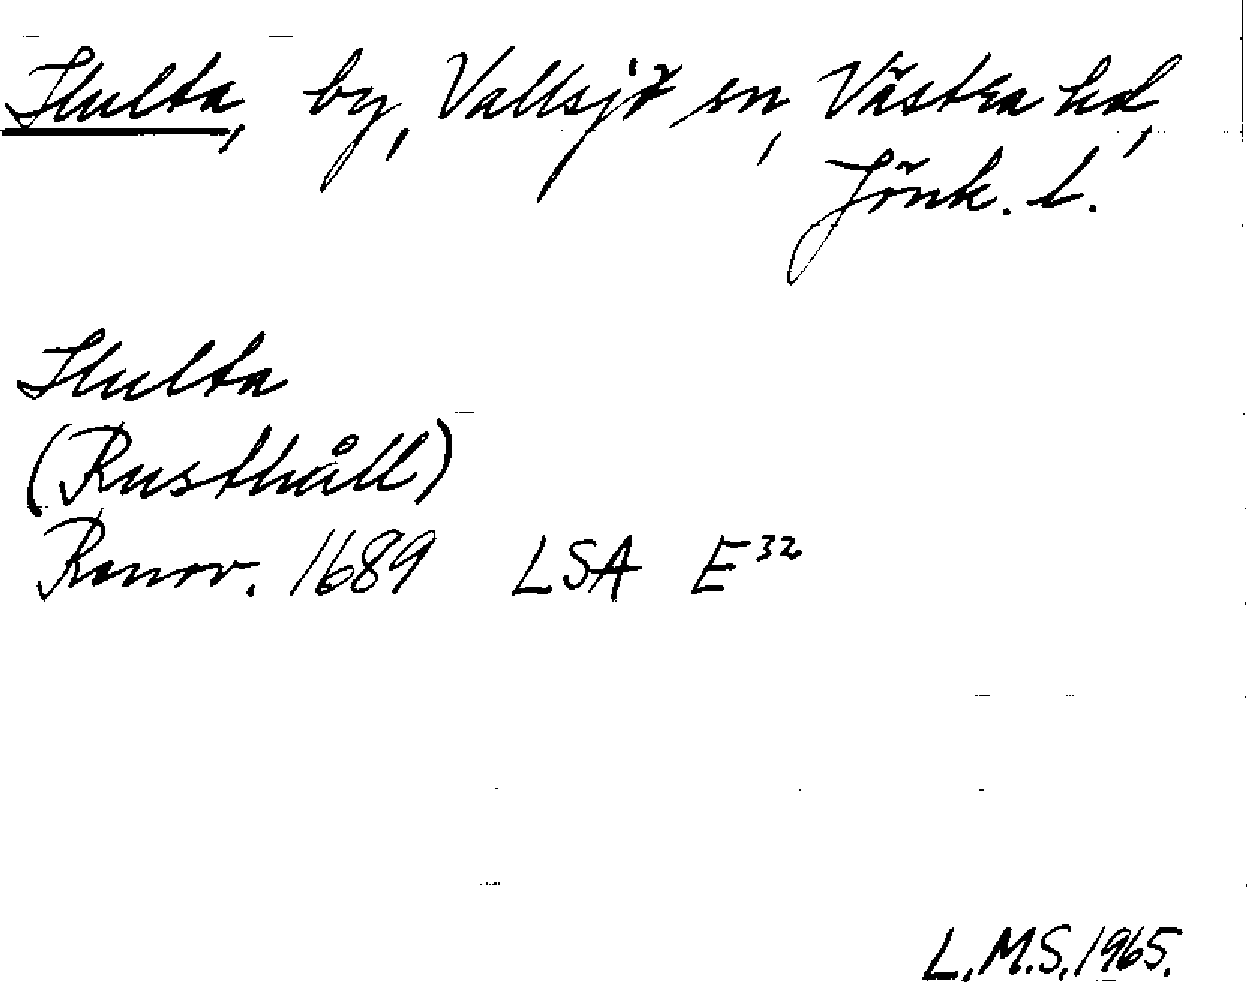 Hulta, by, Vallsjö sn, Västra hd,
Jönk. l.
Hulta
(Rusthåll)
Renov. 1689 LSA E32
L.M.S. 1965.